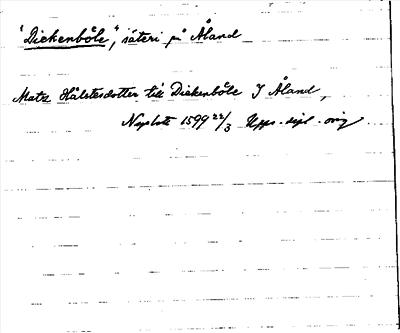 "Dickenböle", säteri på Åland
Matz Hålstesdotter till Dickenböle I Åland,
1599 22/3 Upps. dipl. orig